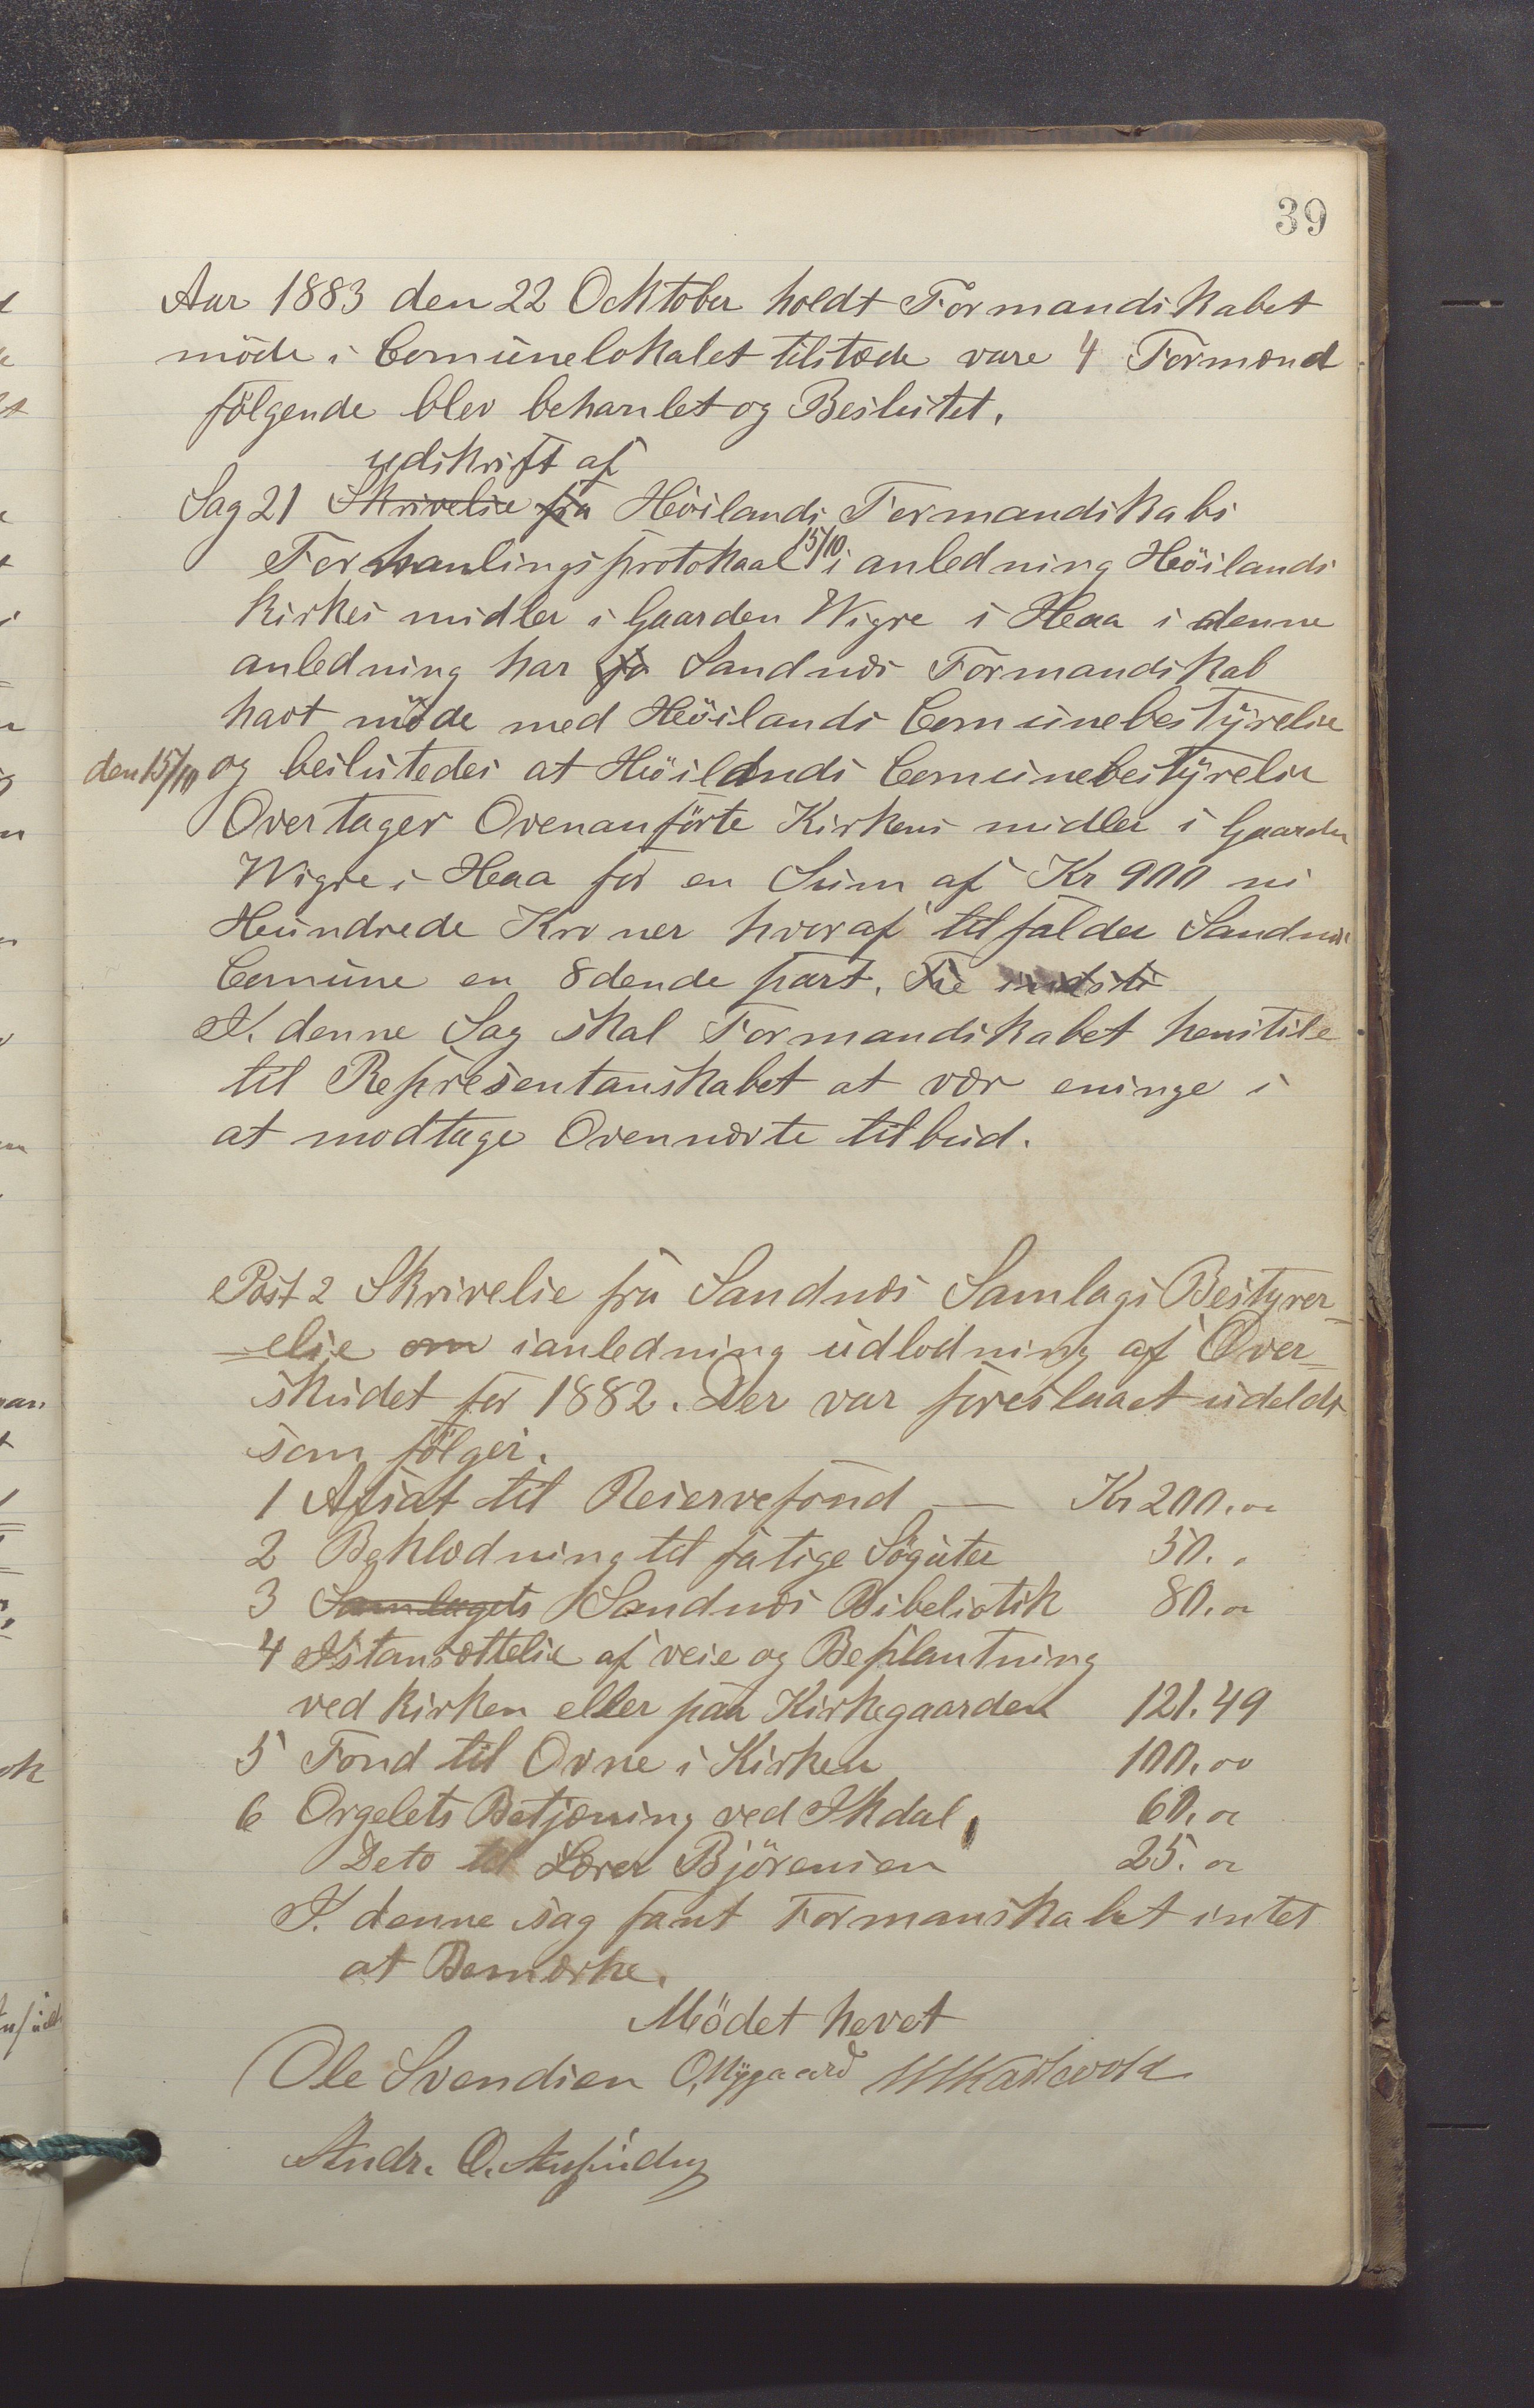 39
Aar 1883 den 22 Ocktober holdt Formandskabet
möde i Comunelokalet tilstæde vare 4 Formænd
fölgende blev behanlet og Besluttet.
udskrift af
Sag 21 Skrivelse fra Höilands Formandskabs
Forhanlingsprotokaal 15/10 i anledning Höilands
Kirkes midler i Gaarden Wigre i Haa i denne
anledning har fo Sandnæs Formandskab
havt möde med Höilands Comunebestyrelse
den 15/10 og beslutedes at Höilands Comunebestyrelse
Overtager Ovenanförte Kirkens midler i Gaarden
Wigre i Haa for en Sum af Kr 900 ni
Hundrede Kroner hvoraf tilfalder Sandnæs
Comune en 8dende part.
I denne Sag skal Formandskabet henstile
til Represëntanskabet at vær eninge i
at modtage Ovennævte tilbud.
Post 2 Skrivelse fra Sandnæs Samlags Bestyrer-
=else om ianledning udlodning af Over=
skudet for 1882. Der var foreslaaet udeldt
som fölger.
1 Afsat til Reservefond — Kr 200.00
2 Beklædning til fatige Sögute 50. „
3 Samlagets Sandnæs Bibeliotek 80.00
4 Istansættelse af veie og Beplantning
ved kirken eller paa Kirkegaarden 121.49
5 Fond til Ovne i Kirken 100.00
6 Orgelets Betjening ved Skdal 60.00
Deto til Lærer Björensen 25.00
I denne sag fant Formanskabet intet
at Bemærke.
Mödet hevet
Ole Svendsen O. Nygaard
Andr. O.